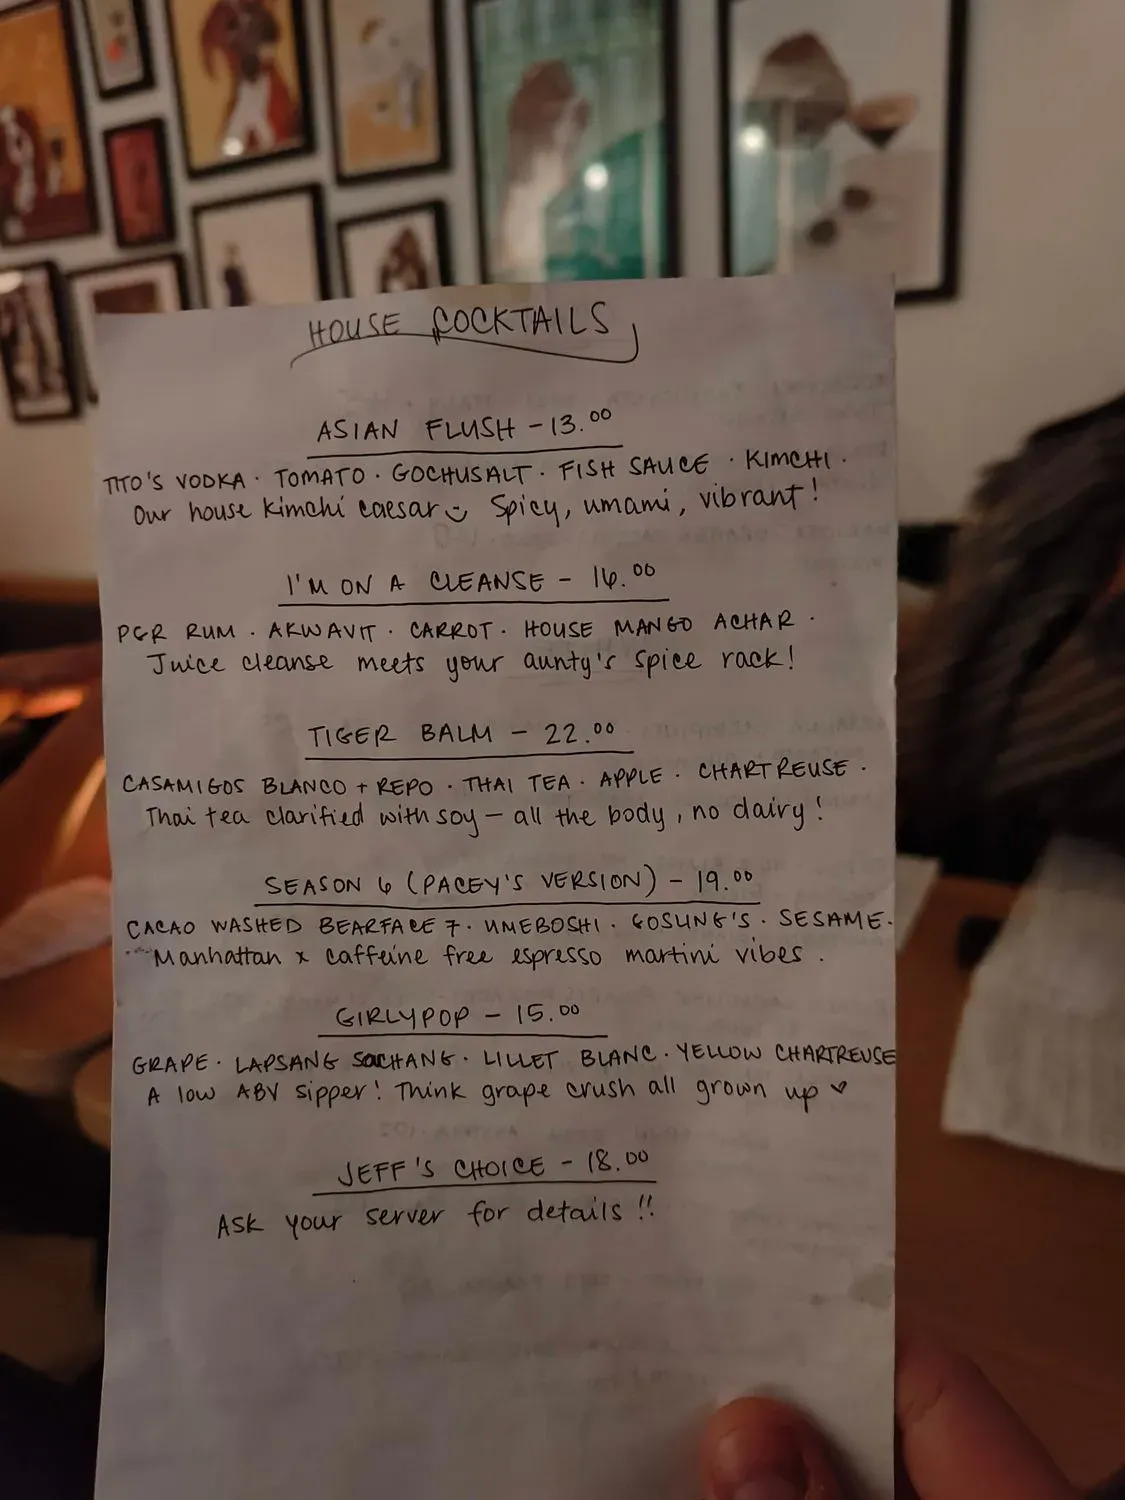 HOUSE COCKTAILS
ASIAN FLUSH - 13.00
TITO'S VODKA · TOMATO · GOCHUSALT · FISH SAUCE · KIMCHI ·
Our house kimchi caesar Spicy, umami, vibrant!
I'M ON A CLEANSE - 16.00
PGR RUM · AKWAVIT · CARROT · HOUSE MANGO ACHAR ·
Juice cleanse meets your aunty's spice rack!
TIGER BALM - 22.00
CASAMIGOS BLANCO + REPO · THAI TEA · APPLE · CHARTREUSE ·
Thai tea clarified with soy - all the body, no dairy!
SEASON 6 (PACEY'S VERSION) - 19.00
CACAO WASHED BEARFACE 7 · UMEBOSHI · GOSLING'S · SESAME ·
Manhattan x caffeine free espresso martini vibes.
GIRLYPOP - 15.00
GRAPE · LAPSANG SOCHANG · LILLET BLANC · YELLOW CHARTREUSE
A low ABV sipper! Think grape crush all grown up ♥
JEFF'S CHOICE - 18.00
ASK your server for details!!